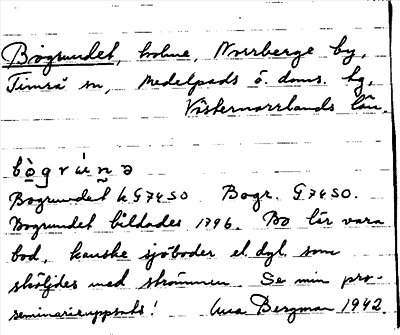 Bogrundet, holme, Norrberge by,
Timrå sn, Medelpads ö. doms. hg,
Västernorrlands län.
bò̱gru̇́nə
Bogrundet k G7450 Bogr. G7450.
Bogrundet bildades 1796. Bo lär vara
bod, kanske sjöboder el. dyl. som
sköljdes med strömmen. Se min pro-
seminarieuppsats! Bergman 1942.